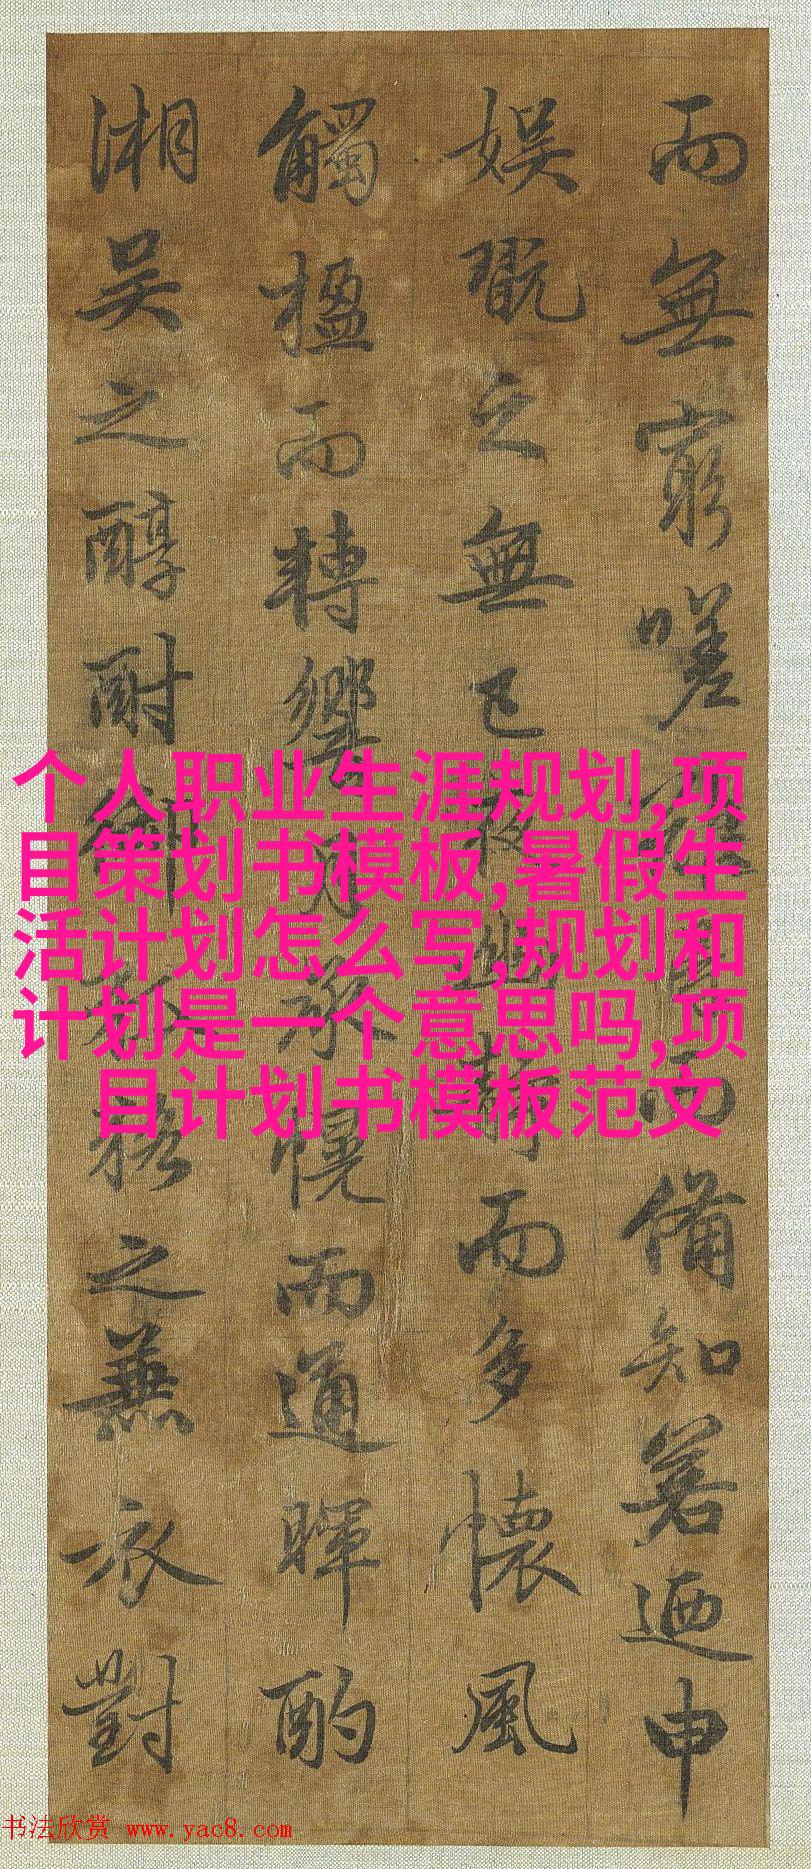 而無窮嗟而備知迺申
娛翫之無已而多懷風
觸楹而轉響月承幌而通暉酌
湘吳之醇酎御之兼衣對
个人职业生涯规划,项
目策划书模板,暑假生
活计划怎么写,规划和
计划是一个意思吗,项
目计划书模板范文
书法欣赏 www.yac8.com